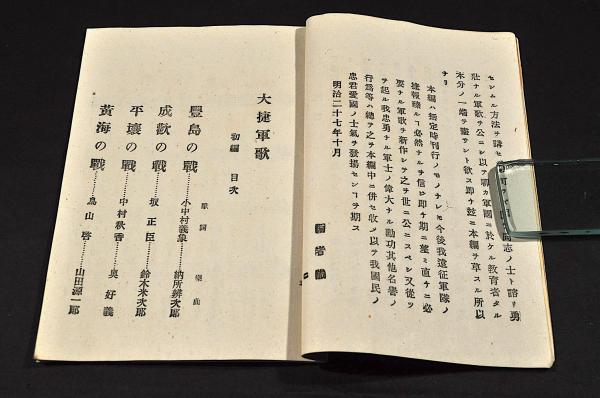 センムル方法ヲ講セ
志ノ士ト諮リ勇
壯ナル軍歌ヲ公ニシ以テ聊カ軍國ニ於ケル教育者タル
本分ノ一端ヲ盡サント欲ス即チ玆ニ本編ヲ草スル所以
ナリ
本編ハ無定時刊行ノモノナレヒ今後我遠征軍隊ノ
捷報臻ルヿ必然ナルヲ信シ即チ期ニ望ミ直チニ必
要ナル軍歌ヲ新作シ之ヲ世ニ公ニスベシ又從テ
ヲ起ル我忠勇ナル軍士ノ偉大ナル勳功其他名譽ノ
行爲等ハ總テ之ヲ本編中ニ併セ收メ以テ我國民ノ
忠君愛國ノ士氣ヲ發揚センコヲ期ス
明治二十七年十月
編者識
大捷軍歌
初編 目次
歌詞 樂曲
豐島の戰……小中村義象……納所辨次郎
成歡の戰……坂正臣……鈴木米次郎
平壤の戰……中村秋香……奥好義
黃海の戰……鳥山啓……山田源一郎